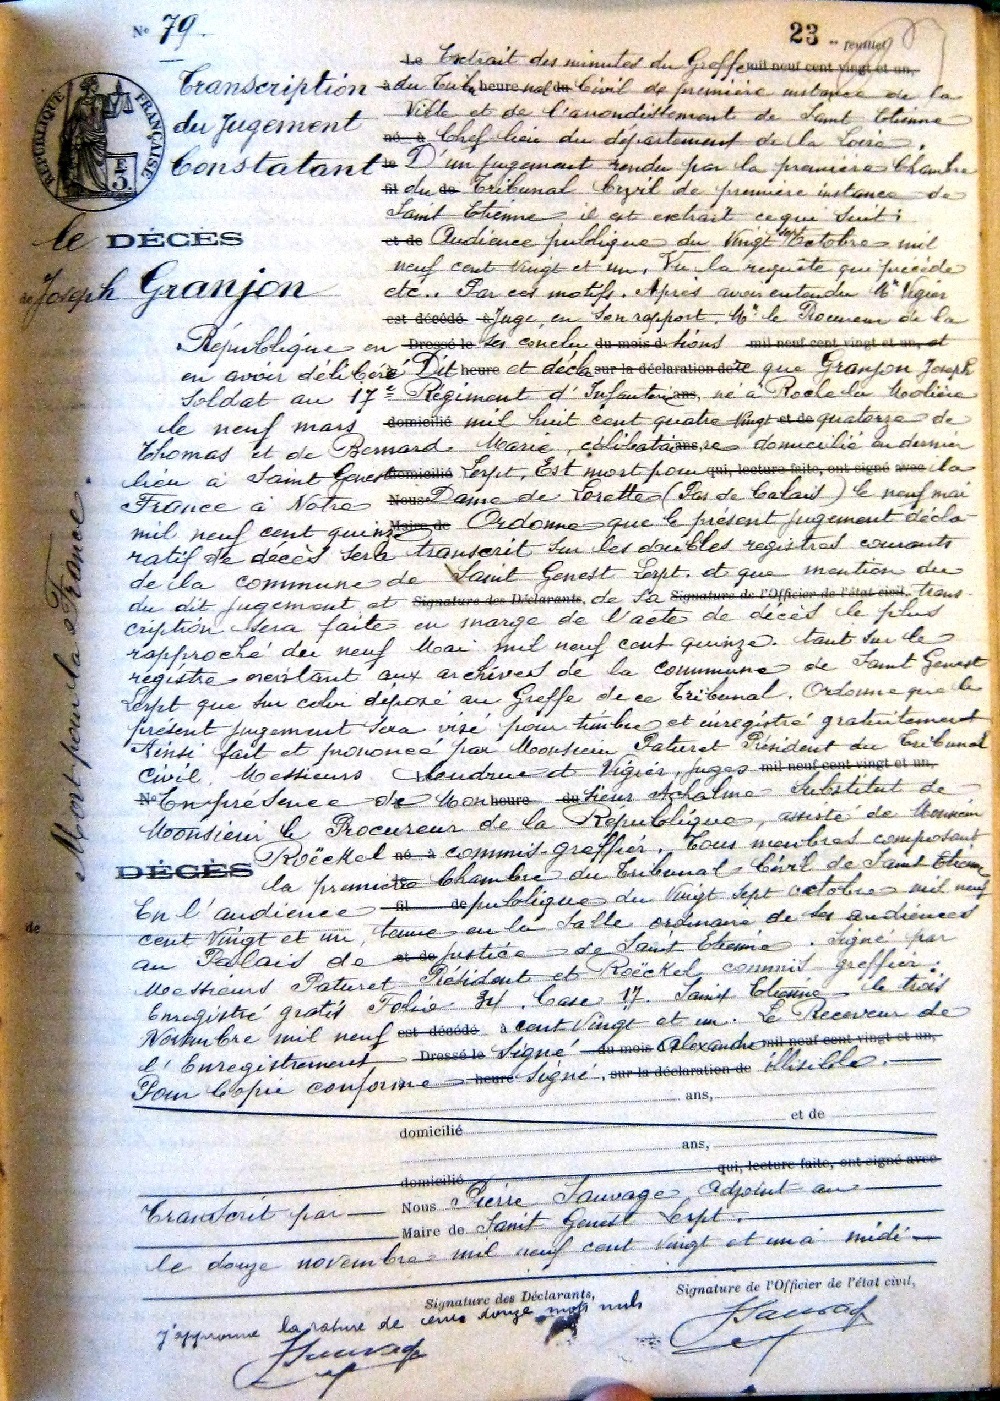 N° 79.
23 feuillet
RÉPUBLIQUE FRANÇAISE
3F
Transcription
du Jugement
Constatant
le DÉCÈS
de Joseph Granjon
Mort pour la France.
Le Extrait des minutes du Greffe mil neuf cent vingt et un,
à du Tribu heure nal du Civil de première instance de la
Ville et de l'arrondissement de Saint Etienne
né à Chef lieu du département de la Loire.
le D'un jugement rendu par la première Chambre
fil du de Tribunal Civil de première instance de
Saint Etienne il est extrait ce que suit :
et de Audience publique du Vingt sept octobre mil
neuf cent vingt et un. Vu la requête qui précède
etc.. Par ces motifs. Après avoir entendu Mr Vigier
est décédé à Juge, en son rapport. Mr le Procureur de la
République en Dressé le ses conclu du mois d sions mil neuf cent vingt et un, et
en avoir délibéré Dit heure et décla sur la déclaration de re que Granjon Joseph
soldat au 17e Régiment d'Infanterie ans, né à Roche la Molière
le neuf mars domicilié mil huit cent quatre vingt et de quatorze de
Thomas et de Bernard Marie, célibatai ans, re domicilié en dernier
lieu à Saint Genest domicilié Lerpt, Est mort pour qui, lecture faite, ont signé avec la
France à Notre Nous Dame de Lorette (Pas de Calais) le neuf mai
mil neuf cent quinze Maire de Ordonne que le présent jugement décla-
ratif de décès sera transcrit sur les doubles registres courants
de la commune de Saint Genest Lerpt. et que mention du
du dit jugement et Signature des Déclarants, de sa Signature de l'Officier de l'état civil, trans
cription sera faite en marge de l'acte de décès le plus
rapproché du neuf Mai mil neuf cent quinze. tant sur le
registre existant aux archives de la commune de Saint Genest
Lerpt que sur celui déposé au Greffe de ce Tribunal. Ordonne que le
présent jugement sera visé pour timbre et enregistré gratuitement
Ainsi fait et prononcé par Monsieur Paturet Président du Tribunal
Civil, Messieurs et Vigier, juges mil neuf cent vingt et un,
N° En présence de Mon heure du sieur Achalme Substitut de
Monsieur le Procureur de la République, assisté de Monsieur
Roëckel né à commis-greffier. Tous membres composant
DÉCÈS
la première le Chambre du Tribunal Civil de Saint Etienne
En l'audience fil de publique du Vingt sept octobre mil neuf
de
cent vingt et un, tenue en la salle ordinaire de ses audiences
au Palais de et de justice de Saint Etienne. Signé par
Messieurs Paturet Président et Roëckel commis greffier.
Enregistré gratis Folio 34. Case 17. Saint Etienne le trois
Novembre mil neuf est décédé à cent vingt et un. Le Receveur de
l'Enregistrement Dressé le Signé du mois d Alexandre mil neuf cent vingt et un,
Pour Copie conforme heure Signé, sur la déclaration de illisible.
ans,
et de
domicilié
ans,
domicilié qui, lecture faite, ont signé avec
Transcrit par Nous Pierre Sauvage adjoint au
Maire de Saint Genest Lerpt.
le douze novembre mil neuf cent vingt et un à midi
Signature des Déclarants, Signature de l'Officier de l'état civil,
J'approuve la rature de cent douze mots nuls
Sauvage
Sauvage